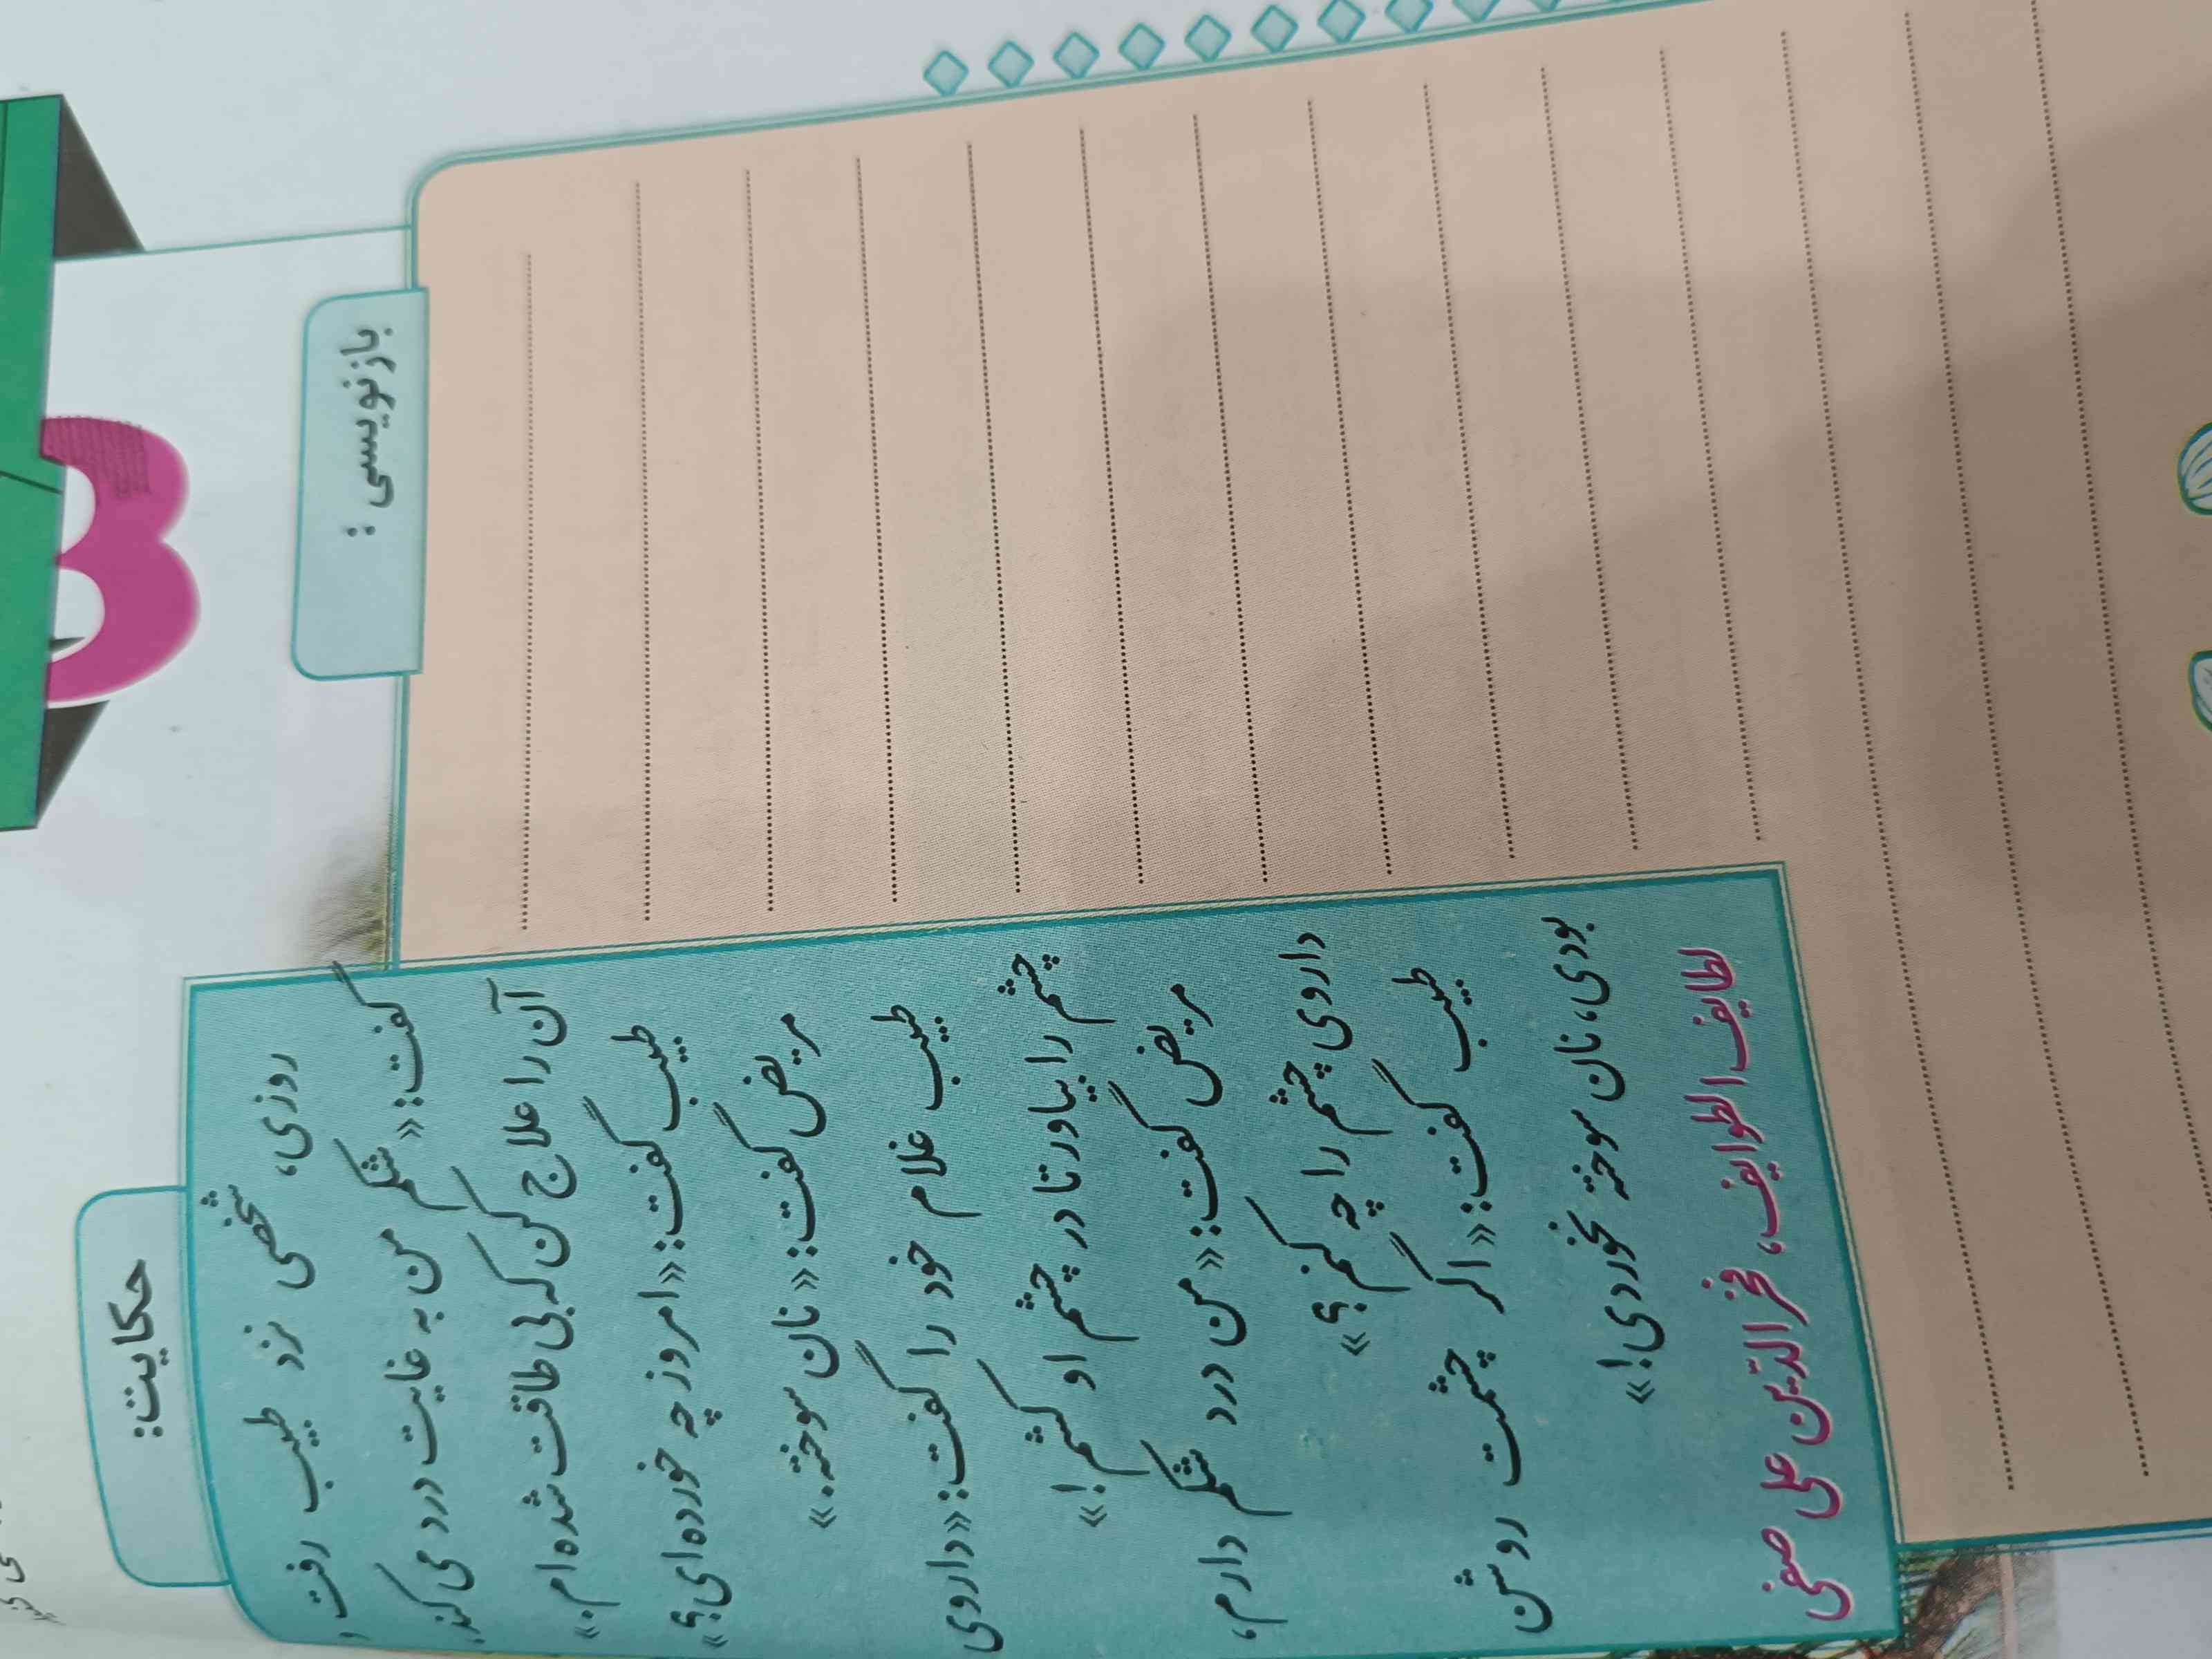 حکایت:
روزی، شخصی نزد طبیب رفت و
گفت: «شکم من به غایت درد می‌کند،
آن را علاج کن که بی‌طاقت شده‌ام.»
طبیب گفت: «امروز چه خورده‌ای؟»
مریض گفت: «نان سوخته.»
طبیب غلام خود را گفت: «داروی
چشم را بیاور تا در چشم او کشم!»
مریض گفت: «من درد شکم دارم،
داروی چشم را چه کنم؟»
طبیب گفت: «اگر چشمت روشن
بودی، نان سوخته نخوردی!»
لطایف الطوایف، فخرالدّین علی صفی
بازنویسی :